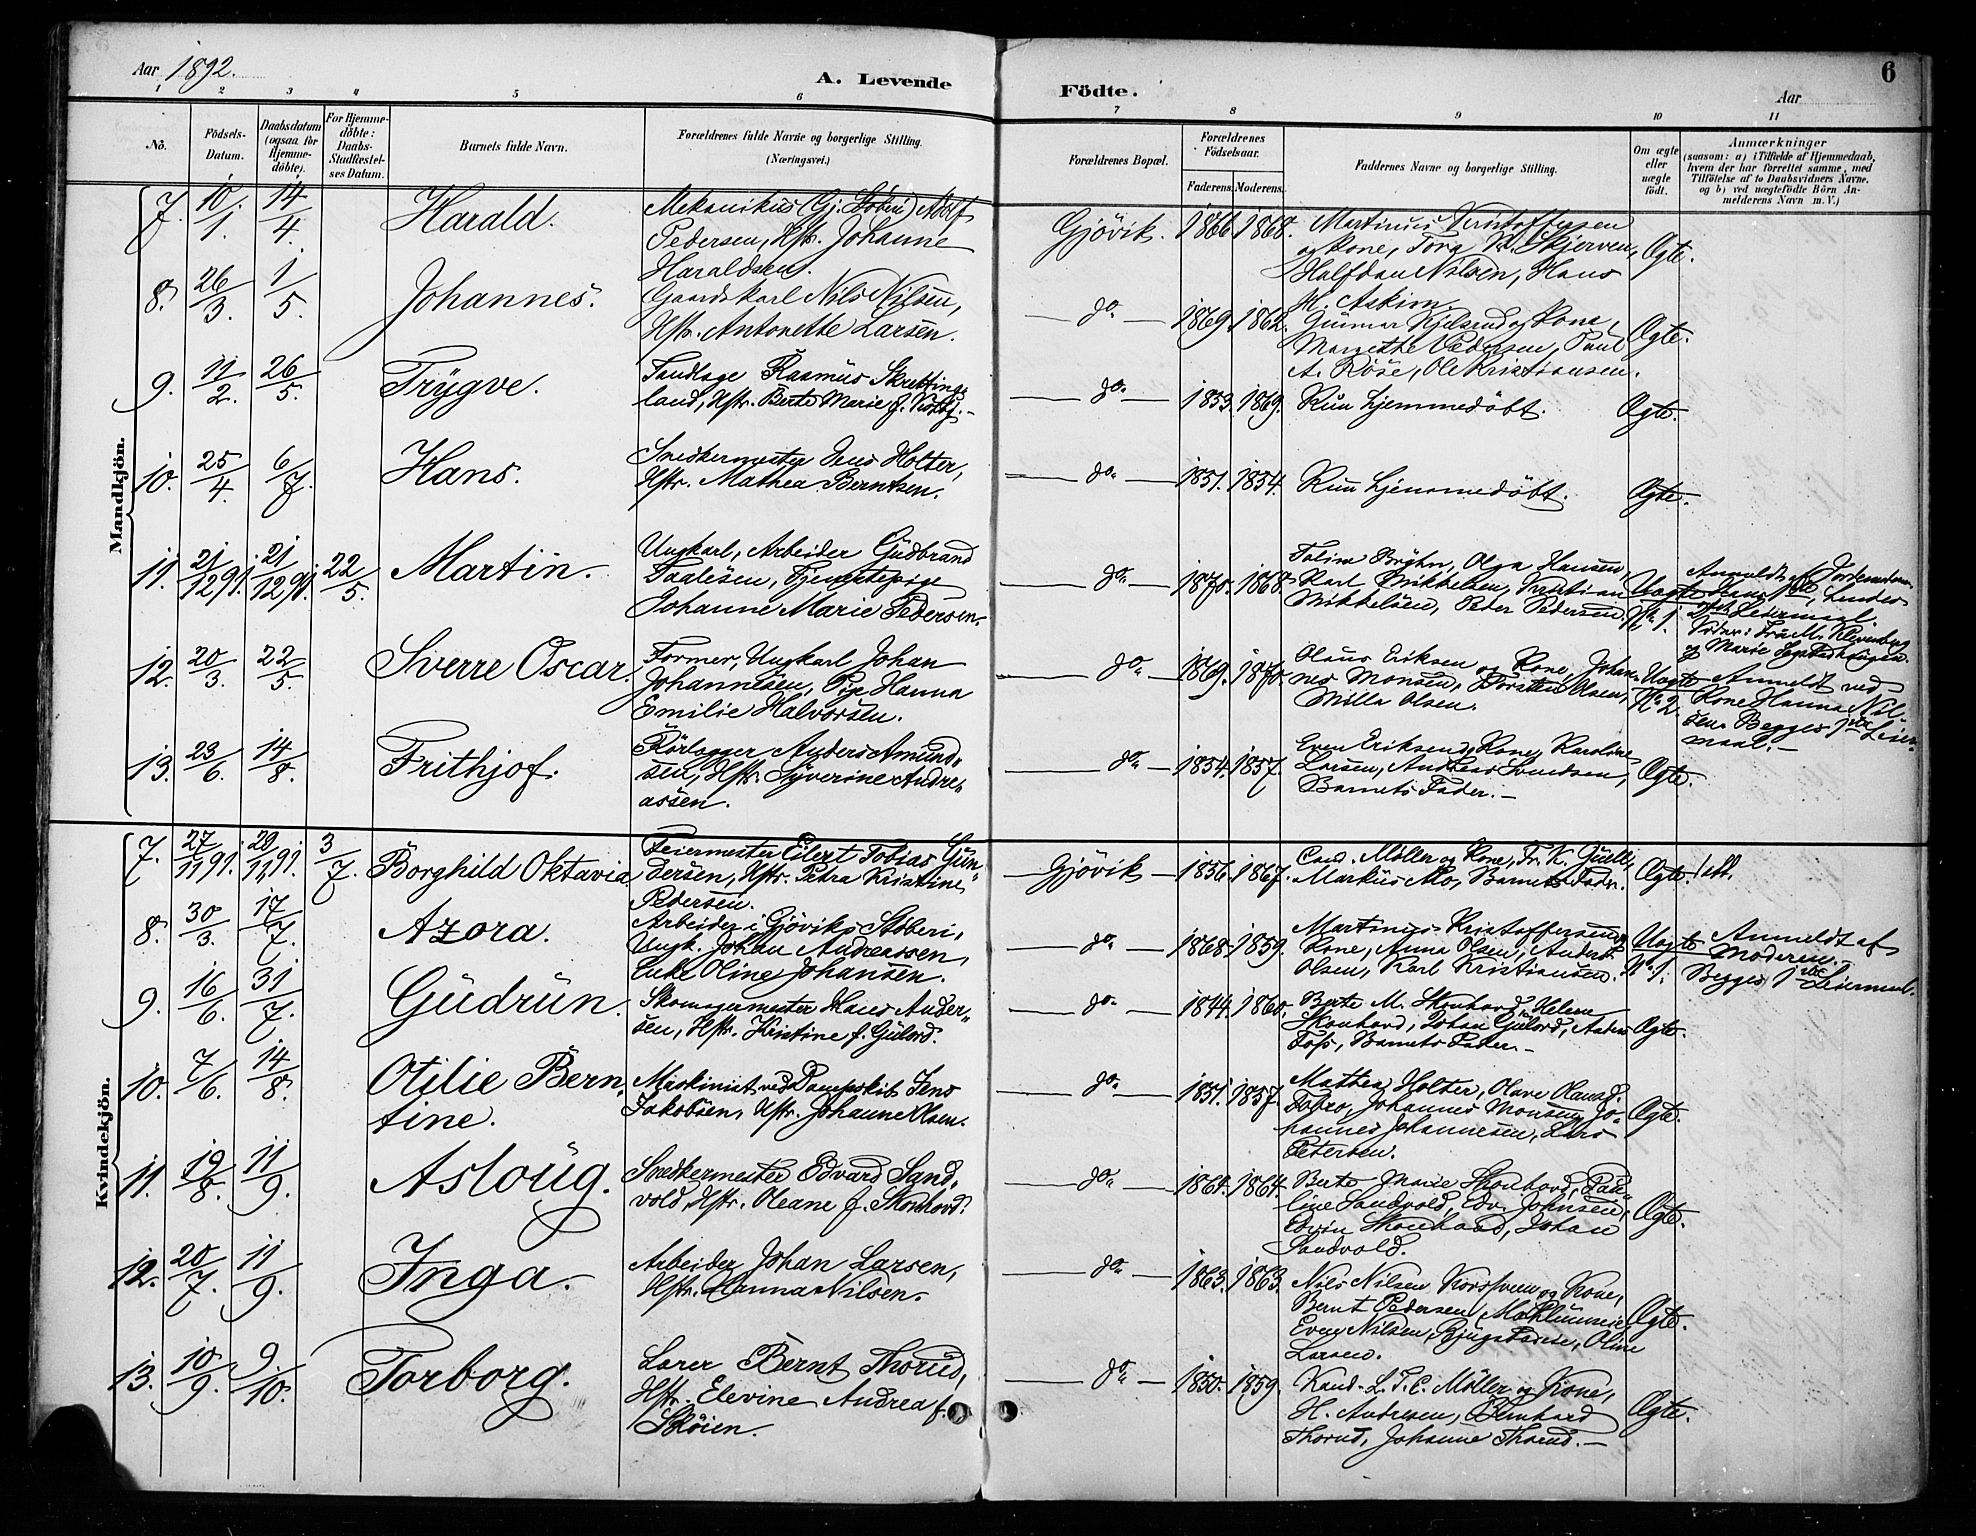 Aar 1892.
A. Levende
Födte.
Aar
6
1 2 3 4 5 6 7 8 9 10 11
No.
Födsels-
Datum.
Daabsdatum
(ogsaa for
Hjemme-
döbte).
For Hjemme-
döbte:
Daabs-
Stadfæstel-
ses Datum.
Barnets fulde Navn.
Forældrenes fulde Navne og borgerlige Stilling.
(Næringsvei.)
Forældrenes Bopæl.
Forældrenes
Födselsaar.
Faderens. Moderens.
Faddernes Navne og borgerlige Stilling.
Om ægte
eller
uægte
födt.
Anmærkninger
(saasom: a) i Tilfælde af Hjemmedaab,
hvem der har forrettet samme, med
Tilföielse af to Daabsvidners Navne,
og b) ved uægtefödte Börn An-
melderens Navn m. V.)
Mandkjön.
7. 10/1. 14/4. Harald.
Mekanikus (Gj. Støberi) Adolf
Pedersen, Hstr. Johanne
Haraldsen.
Gjövik. 1866 1868.
Martinus Kristoffersen
og Kone, Torg K. Skjerven,
Halfdan Nilsen, Hans
H. Askim.
Ægte.
8. 26/3. 1/5. Johannes.
Gaardskarl Nils Nilsen,
Hstr. Antonette Larsen.
do 1869. 1862.
Gunnar Kjelsrud og Kone,
Margrethe Pedersen, Paul
A. Röse, Ole Kristiansen.
Ægte.
9. 11/2. 26/5. Trygve.
Tandlæge Rasmus Skrettings-
land, Hstr. Berte Marie f.
do 1853. 1869. Kun hjemmedöbt. Ægte.
10. 25/4. 6/7. Hans.
Snedkermester Jens Holter,
Hstr. Mathea Berntsen.
do 1851. 1854. Kun hjemmedöbt. Ægte.
11. 21/12 91. 21/12 91. 22/5. Martin.
Ungkarl, Arbeider Gudbrand
Paalesen, Tjenestepige
Johanne Marie Pedersen.
do 1870. 1868.
Olga Hansen,
Karl Mikkelsen, Kristian
Mikkelsen, Peder Pedersen.
Uægte
No 1.
Anmeldt af Jordemoderen
Leiermaal.
og Marie
12. 20/3. 22/5. Sverre Oscar.
Former, Ungkarl Johan
Johannesen, Pige Hanna
Emilie Halvorsen.
do 1869. 1870.
Olaus Eriksen og Kone, Johan-
nes Monsen, Torsten Olsen,
Milla Olsen.
Uægte
No 2.
Anmeldt ved
Kone Hanna Nil-
sen. Begges 1ste Leier-
maal.
13. 23/6. 14/8. Frithjof.
Rörlægger Anders Amund-
sen, Hstr. Syverine Andre-
assen.
do 1854. 1857.
Even Eriksen og Kone, Karoline
Larsen, Andreas Svendsen,
Barnets Fader.
Ægte.
Kvindekjön.
7. 27/11 91. 29/12 91. 3/7. Borghild Oktavia
Feiermester Eilert Tobias Gun-
dersen, Hstr. Petra Kristine
Pedersen.
Gjövik 1856. 1867.
Cand. Møller og Kone, Fr. K. Gulli,
Markus Mo, Barnets Fader.
Ægte.
8. 30/3. 17/7. Azora.
Arbeider i Gjöviks Støberi,
Ungk. Johan Andreassen,
Enke Oline Johansen.
do 1868. 1859.
Martinus Kristoffersen og
Kone, Anna Olsen, Anders
Olsen, Karl Kristiansen.
Uægte
No 1.
Anmeldt af
Moderen.
Begges 1ste Leiermaal.
9. 16/6. 31/7. Gudrun.
Skomagermester Hans Ander-
sen, Hstr. Kristine f. Gulord.
do 1844. 1860.
Berte M. Skonhovd, Helene
Skonhovd, Johan Gulord, Anders
Foss, Barnets Fader.
Ægte.
10. 7/6. 14/8. Otilie Bern-
tine.
Maskinist ved Dampskib Jens
Jakobsen, Hstr. Johanne Olsen.
do 1851. 1857.
Mathea Holter, Olave Olausd.
Fobro, Johannes Monsen, Jo-
hannes Johannesen, Lars
Petersen.
Ægte.
11. 19/8. 11/9. Asloug.
Snedkermester Edvard Sand-
vold, Hstr. Oleane f. Skonhovd.
do 1864. 1864.
Berte Marie Skonhovd, Pau-
line Sandvold, Edv. Johnsen,
Edvin Skonhovd, Johan
Sandvold.
Ægte.
12. 20/7. 11/9. Inga.
Arbeider Johan Larsen,
Hstr. Hanna Nilsen.
do 1863. 1863.
Nils Nilsen og Kone,
Bernt Pedersen
Even Nilsen, Oline
Larsen.
Ægte.
13. 10/9. 9/10. Torborg.
Lærer Bernt Thorud,
Hstr. Elevine Andrea f.
Sköien.
do 1850. 1859.
Kand. L. T. C. Møller og Kone,
H. Andresen, Bernhard
Thorud, Johanne Thorud.
Ægte.